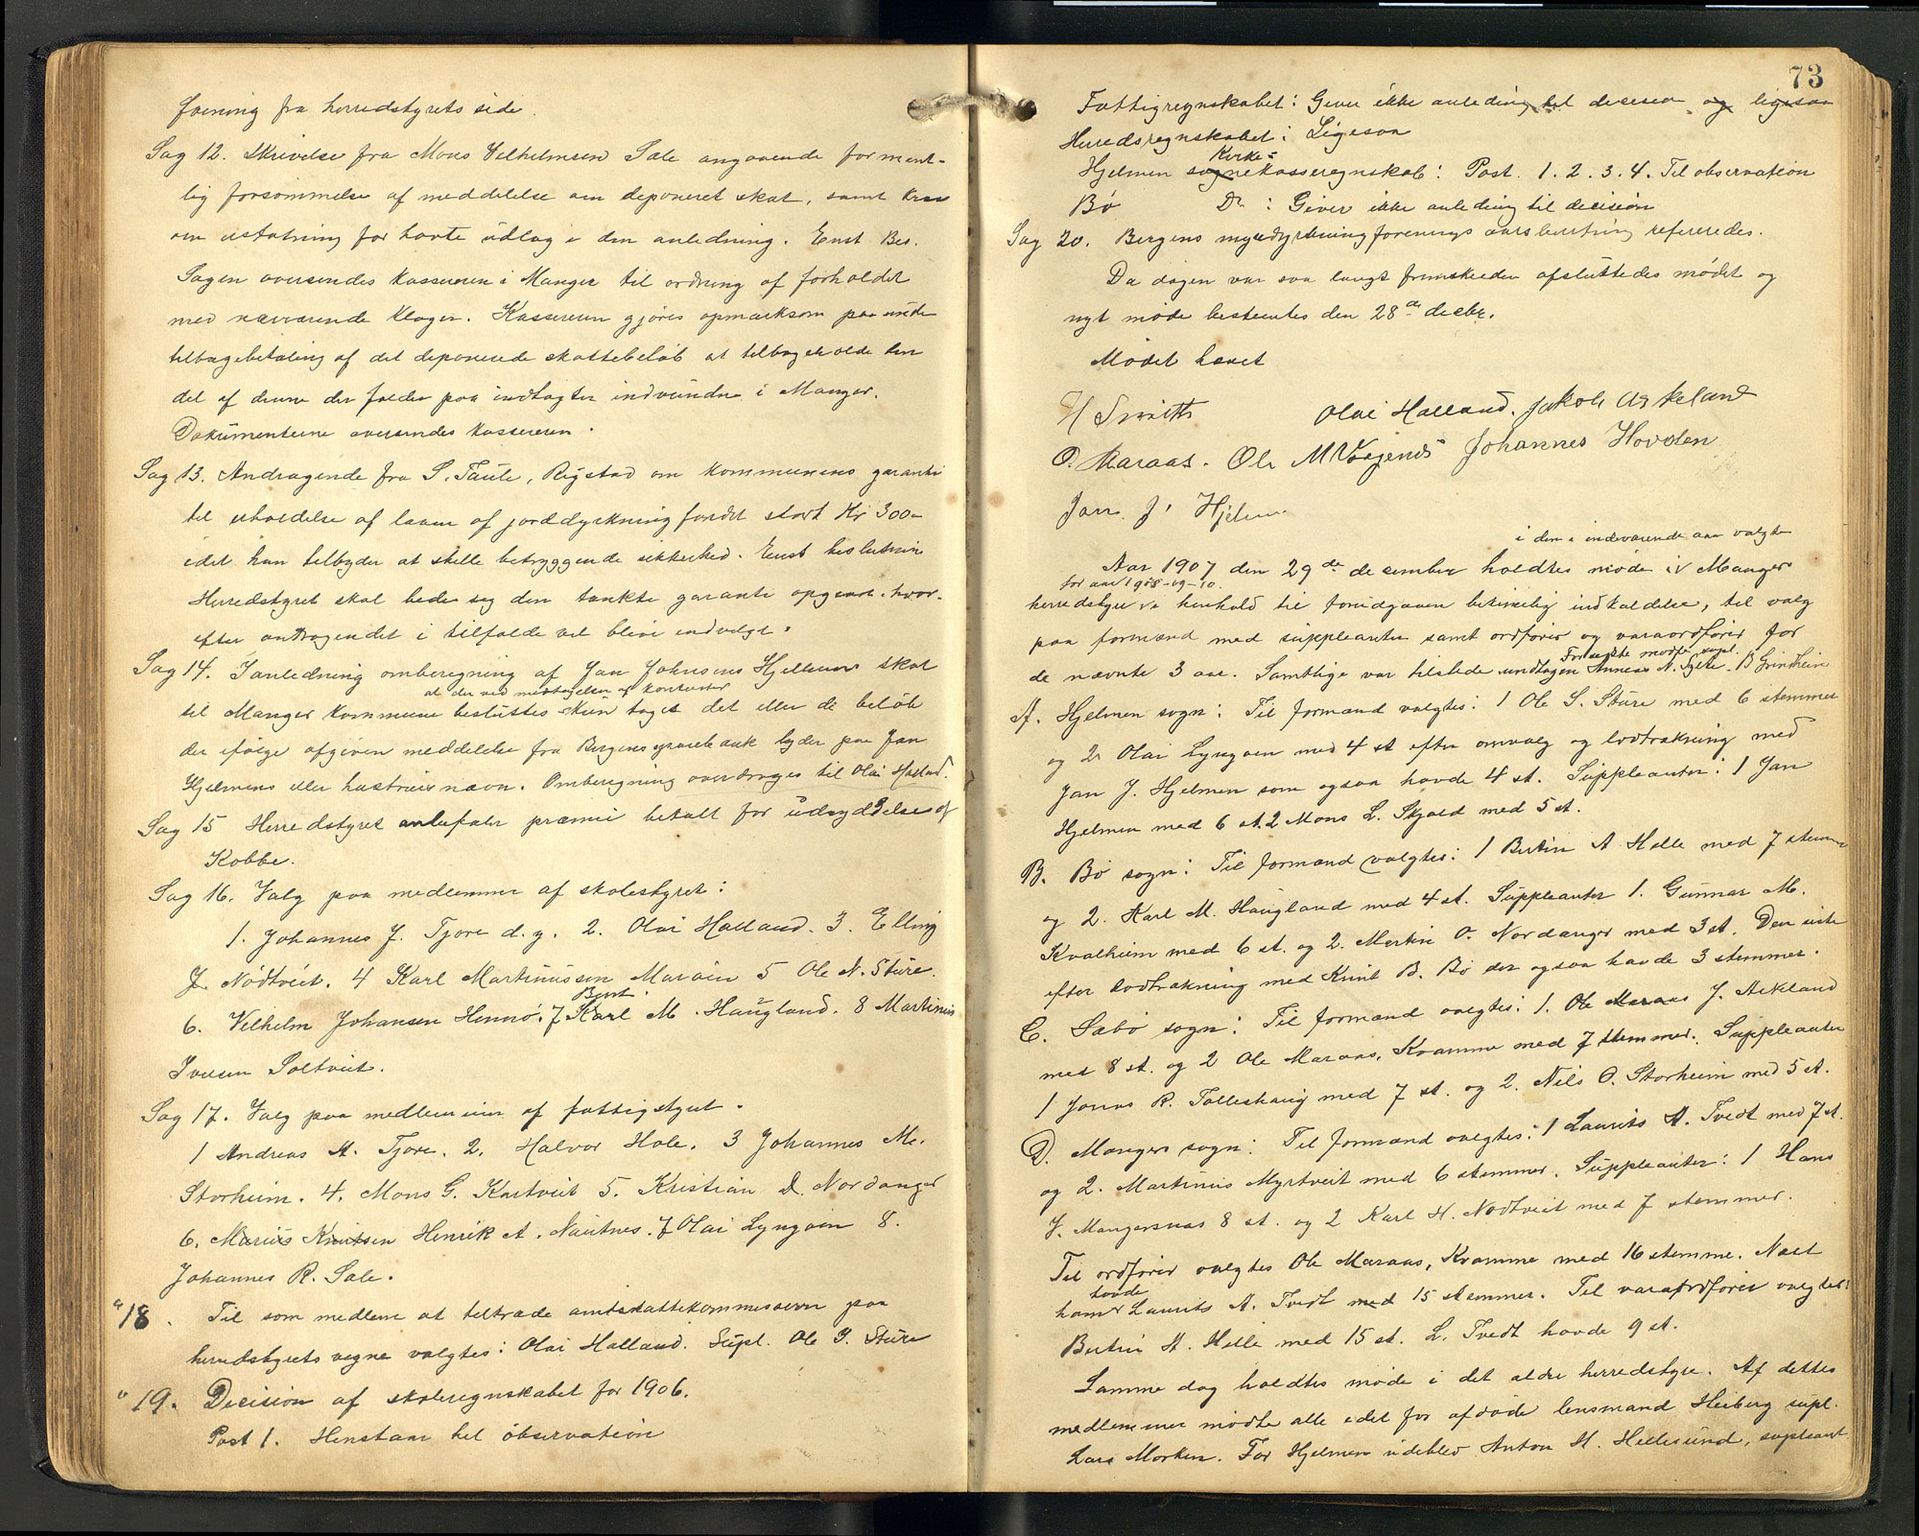 foening fra herredstyrets side.
Sag 12. Skrivelse fra Mons Vilhelmsen Sæle angaaende forment-
lig forsømmelse af meddelelse om deponeret skat, samt krav
om erstatning for havte udlæg i den anledning. Enst Bes.
Sagen oversendes kassereren i Manger til ordning af forholdet
med nærværende klager. Kassereren gjøres opmerksom paa under
tilbagebetaling af det deponerede skattebeløb at tilbageholde den
del af denne der falder paa indtægter indvundne i Manger.
Dokumenterne oversendes kassereren.
Sag 13. Andragende fra S. Taule, Rigstad om kommunens garanti
til erholdelse af laan af jorddyrkningsfondet stort Kr 300-
idet han tilbyder at stille betryggende sikkerhed. Enst beslutning
Herredstyret skal bede sig den tænkte garanti opgivet, hvor-
efter andragendet i tilfælde vil blive indvilget.
Sag 14. I anledning omberegning af Jan Johnsens Hjelmens skat
at der ved modtagelsen af kontanter
til Manger kommune besluttes kun toges det eller de beløb
der ifølge afgiven meddelelse fra Bergens sparebank lyder paa Jan
Hjelmens eller hustrues navn. Omberegning overdrages til Olai Halland.
Sag 15 Herredstyret anbefaler præmie betalt for udryddelse af
Kobbe.
Sag 16. Valg paa medlemmer af skolestyret:
1. Johannes J. Tjore d.y. 2. Olai Halland. 3. Elling
J. Nødtveit. 4 Karl Martinussen Marøen 5 Ole N. Sture.
Bernt
6. Vilhelm Johansen Hernø. 7 Karl M. Haugland. 8 Martinus
Iversen Soltveit.
Sag 17. Valg paa medlemmer af fattigstyret.
1 Andreas A. Tjore. 2. Halvor Hole. 3 Johannes M.
Storheim. 4. Mons G. Kartveit 5. Kristian D. Nordanger
6. Marius Knutsen Henrik A. Nautnes. 7 Olai Lyngøen 8.
Johannes R. Sæle.
" 18. Til som medlem at tiltræde amtsskattekommissionen paa
herredstyrets vegne valgtes: Olai Halland. Supl. Ole S. Sture
" 19. Decision af skoleregnskabet for 1906.
Post 1. Henstaar til observation
73
Fattigregnskabet: Giver ikke anledning til decision og ligesaa
Herredsregnskabet: Ligesaa
Kirke-
Hjelmen sognekasseregnskab: Post. 1. 2. 3. 4. Til observation
Bø Do : Giver ikke anledning til decision
Sag 20. Bergens myrdyrkningforenings aarsberetning refereredes.
Da dagen var saa langt fremskreden afsluttedes mødet og
nyt møde bestemtes den 28de decbr.
Mødet hævet
H Smith Olai Halland. Jakob Askeland
O. Maraas. Ole M Vægenes Johannes Hovden
Jan J. Hjelm.
i den i indeværende aar valgte
Aar 1907 den 29de desember holdtes møde i Manger
for aar 1908-09-10.
herredstyre i henhold til forudgaaen betimelig indkaldelse, til valg
paa formænd med suppleanter samt ordfører og varaordfører for
For sidste mødte supl.
de nævnte 3 aar. Samtlige var tilstede undtagen Anneas N. Sylte. B Grindheim
A. Hjelmen sogn: Til formænd valgtes: 1 Ole S. Sture med 6 stemmer
og 2 Olai Lyngøen med 4 st efter omvalg og lodtrækning med
Jan J. Hjelmen som ogsaa havde 4 st. Suppleanter: 1 Jan
Hjelmen med 6 st. 2 Mons L. Skjold med 5 st.
B. Bø sogn: Til formænd valgtes: 1 Bertin A Helle med 7 stemmer
og 2. Karl M. Haugland med 4 st. Suppleanter 1. Gunnar M.
Kvalheim med 6 st. og 2. Martin O. Nordanger med 3 st. Den siste
efter lodtrækning med Knut B. Bø der ogsaa havde 3 stemmer.
C. Sæbø sogn: Til formænd valgtes: 1. Ole Maraas J. Askeland
med 8 st. og 2 Ole Maraas, Kvamme med 7 stemmer. Suppleanter
1 Jonas R. Tolleshaug med 7 st. og 2. Nils O. Storheim med 5 st.
D. Manger sogn: Til formænd valgtes: 1 Laurits A. Tvedt med 7 st.
og 2. Martinus Myrtveit med 6 stemmer. Suppleanter: 1 Hans
J. Mangersnes 8 st. og 2 Karl H. Nødtveit med 7 stemmer.
Til ordfører valgtes Ole Maraas, Kvamme med 16 stemme. Næst
havde
ham Laurits A. Tvedt med 15 stemmer. Til varaordfører valgtes:
Bertin A. Helle med 15 st. L. Tvedt havde 9 st.
Samme dag holdtes møde i det ældre herredstyre. Af dettes
medlemmer mødte alle idet for afdøde lensmand Heiberg supl.
Lars Morken. For Hjelmen udeblev Anton H. Hellesund, supleant